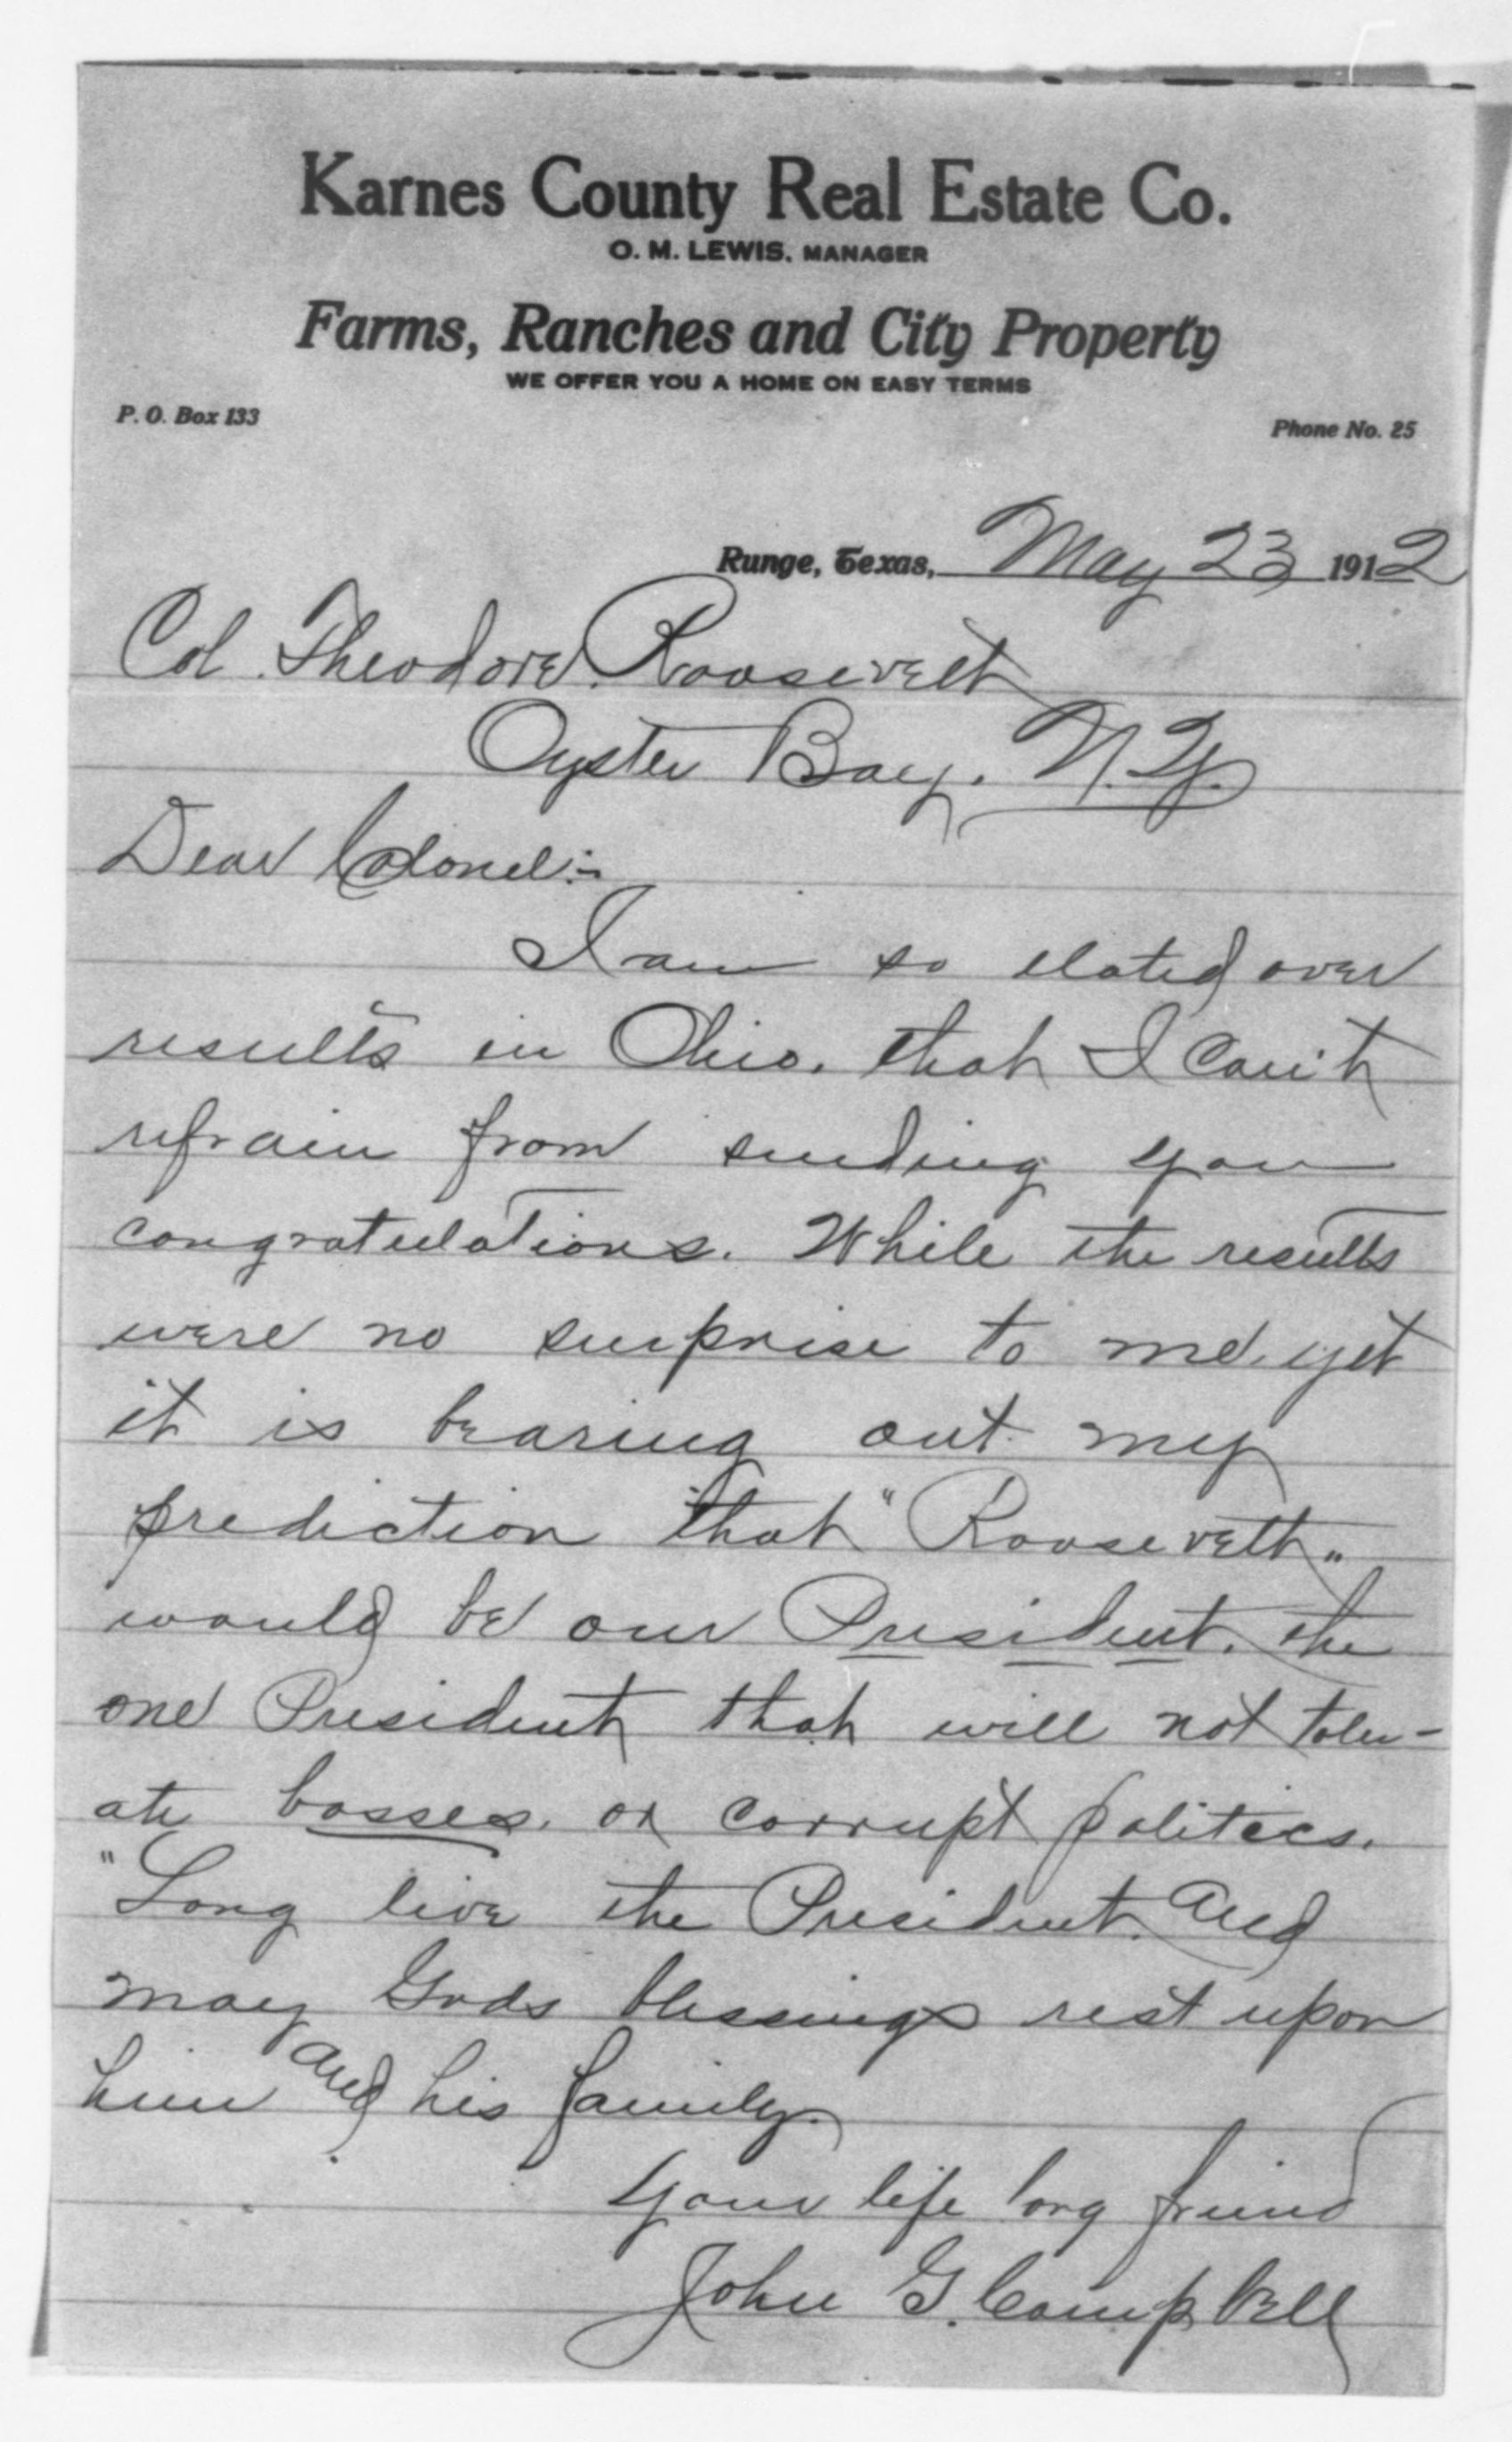 Karnes County Real Estate Co.
O. M. LEWIS, MANAGER
Farms, Ranches and City Property
WE OFFER YOU A HOME ON EASY TERMS
P. O. Box 133
Phone No. 25
Runge, Texas, May 23 1912
Col. Theodore Roosevelt
Oyster Bay, N.Y.
Dear Colonel:-
I am so elated over
results in Ohio, that I can't
refrain from sending you
congratulations. While the results
were no surprise to me, yet
it is bearing out my
prediction that "Roosevelt"
would be our President, the
one President that will not toler-
ate bosses, or corrupt politics.
"Long live the President, and
may Gods blessings rest upon
him and his family.
Your life long friend
John G. Campbell